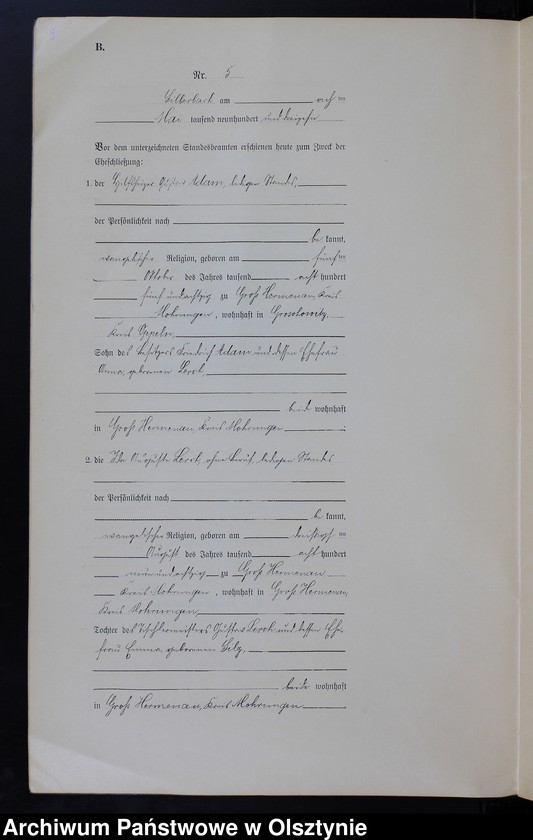 B.
Nr. 5
am acht ten
Mai tausend neunhundert und dreizehn
Vor dem unterzeichneten Standesbeamten erschienen heute zum Zweck der
Eheschließung:
1. der Gustav Adam, ledigen Standes,
der Persönlichkeit nach
be kannt,
evangelischer Religion, geboren am fünf ten
Oktober des Jahres tausend acht hundert
fünf und achtzig zu Groß Hermenau, Kreis
Mohrungen, wohnhaft in Groschowitz,
Kreis Oppeln,
Sohn des Besitzers Friedrich Adam und dessen Ehefrau
Anna, geborenen Lerch,
beide wohnhaft
in Groß Hermenau Kreis Mohrungen
2. die Ida Auguste Lerch, ohne Beruf, ledigen Standes
der Persönlichkeit nach
be kannt,
evangelischer Religion, geboren am ten
August des Jahres tausend acht hundert
neun und achtzig zu Groß Hermenau
Kreis Mohrungen, wohnhaft in Groß Hermenau,
Kreis Mohrungen
Tochter des Tischlermeisters Gustav Lerch und dessen Ehe-
frau Emma, geborenen
beide wohnhaft
in Groß Hermenau, Kreis Mohrungen
Archiwum Państwowe w Olsztynie